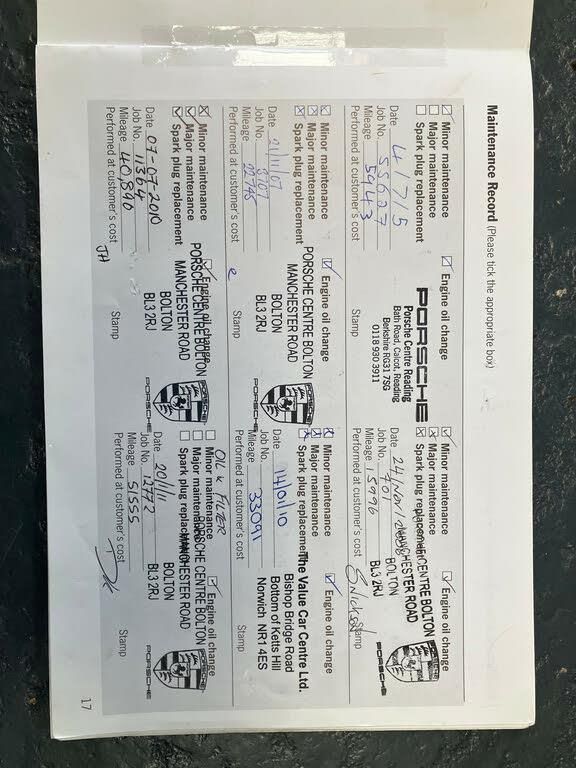 Maintenance Record (Please tick the appropriate box)
Minor maintenance
Major maintenance
Spark plug replacement
Engine oil change
Date 4/7/5
Job No. 55627
Mileage 5943
Performed at customer's cost
PORSCHE
Porsche Centre Reading
Bath Road, Calcot, Reading
Berkshire RG31 7SG
0118 930 3911
Stamp
Minor maintenance
Major maintenance
Spark plug replacement
Engine oil change
Date 24/Nov/2006
Job No. 701
Mileage 15996
Performed at customer's cost
PORSCHE CENTRE BOLTON
MANCHESTER ROAD
BOLTON
BL3 2RJ
PORSCHE
Stamp
Minor maintenance
Major maintenance
Spark plug replacement
Engine oil change
Date 21/11/07
Job No.
Mileage
Performed at customer's cost
PORSCHE CENTRE BOLTON
MANCHESTER ROAD
BOLTON
BL3 2RJ
PORSCHE
Stamp
Minor maintenance
Major maintenance
Spark plug replacement
Engine oil change
Date 14/01/10
Job No.
Mileage 33091
Performed at customer's cost
The Value Car Centre Ltd.
Bishop Bridge Road
Bottom of Ketts Hill
Norwich NR1 4ES
Stamp
Minor maintenance
Major maintenance
Spark plug replacement
Engine oil change
Date 07-07-2010
Job No. 11364
Mileage 40,890
Performed at customer's cost
JH
PORSCHE CENTRE BOLTON
MANCHESTER ROAD
BOLTON
BL3 2RJ
PORSCHE
Stamp
OIL & FILTER
Minor maintenance
Major maintenance
Spark plug replacement
Engine oil change
Date 20/1/11
Job No. 12772
Mileage 51555
Performed at customer's cost
PORSCHE CENTRE BOLTON
MANCHESTER ROAD
BOLTON
BL3 2RJ
PORSCHE
Stamp
17